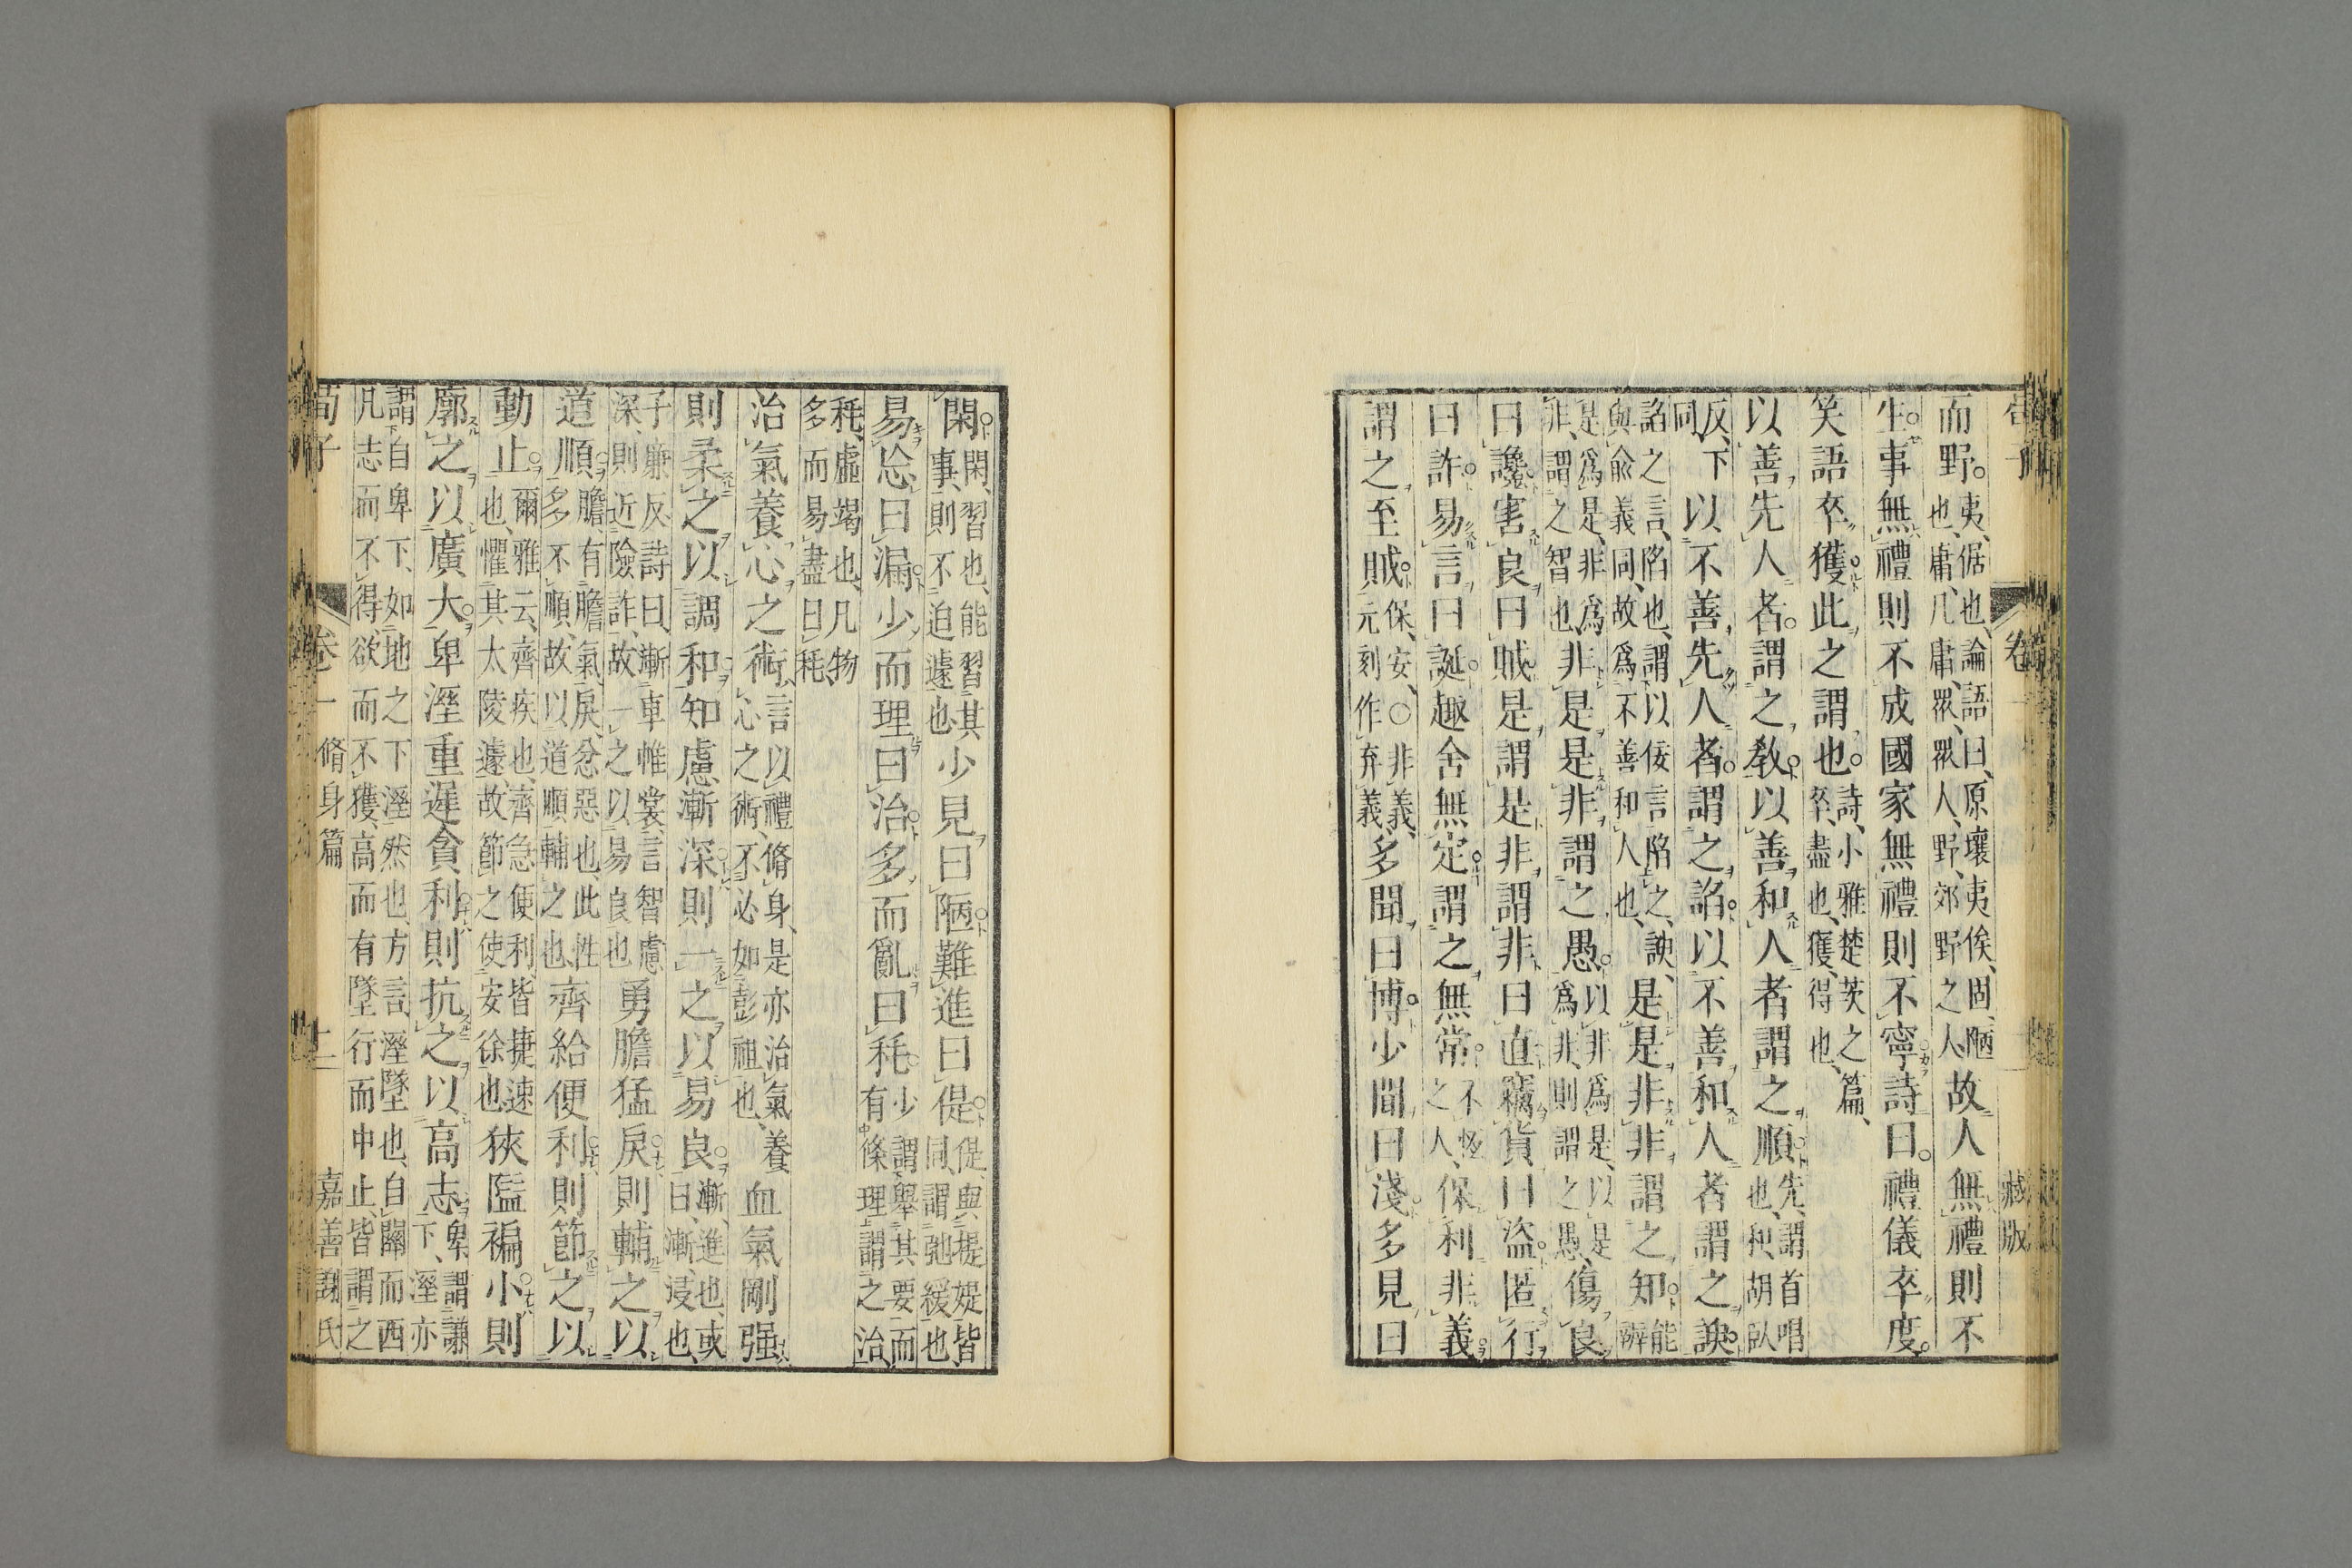 而野。夷、倨也、論語曰、原壤夷俟、固、陋也、庸、凡庸、眾、眾人、野、郊野之人、故人無禮則不
生。事無禮則不成國家無禮則不寧詩曰。禮儀卒度。
笑語卒獲此之謂也。詩、小雅楚茨之篇、卒、盡也、獲、得也、
以善先人者。謂之教以善和人者謂之順先、謂首唱也、和、胡臥
反、下同以不善先人者。謂之諂以不善和人者謂之諛
諂之言、陷也、謂以佞言陷之、諛、與俞義同、故爲不善和人也、是是非非謂之知能辨
是爲是、非爲非、謂之智也、非是是非謂之愚以非爲是、以是爲非、則謂之愚、傷良
曰讒害良曰賊是謂是非謂非曰直竊貨曰盜匿行
曰詐易言曰誕趣舍無定謂之無常不恆之人、保利非義
謂之至賊保、安、○非義、元刻作弃義多聞曰博少聞曰淺多見曰
閑閑、習也、能習其事、則不迫遽也少見曰陋難進曰偍偍、與提媞皆同、謂弛緩也
易忘曰漏少而理曰治多而亂曰秏少謂舉其要而有條理謂之治、
秏、虛竭也、凡物多而易盡曰秏、
治氣養心之術、言以禮脩身、是亦治氣養心之術、不必如彭祖也、血氣剛强
則柔之以調和知慮漸深則一之以易良漸、進也、或曰、漸、浸也、
子廉反詩曰、漸車帷裳、言智慮深、則近險詐、故一之以易良也勇膽猛戾則輔之以
道順膽、有膽氣、戾、忿惡也、此性多不順、故以道順輔之也、齊給便利則節之以
動止爾雅云、齊疾也、齊急便利、皆捷速也、懼其太陵遽故節之使安徐也狹隘褊小則
廓之以廣大卑溼重遲貪利則抗之以高志卑謂謙下、溼亦
謂自卑下、如地之下溼然也、方言、溼墜也、自關而西凡志而不得欲而不獲、高而有墜行而中止、皆謂之
荀子 卷一 脩身篇 十二 嘉善謝氏